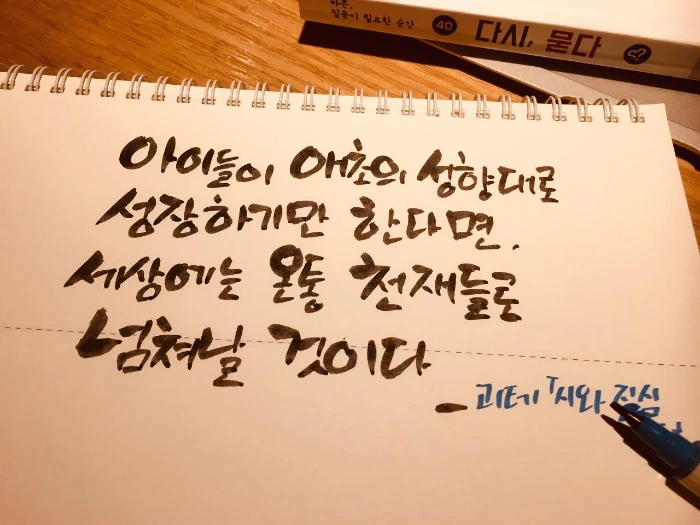 마흔,
질문이 필요한 순간
40
다시, 묻다
아이들이 애초의 성향대로
성장하기만 한다면,
세상에는 온통 천재들로
넘쳐날 것이다
- 괴테 「시와 진실